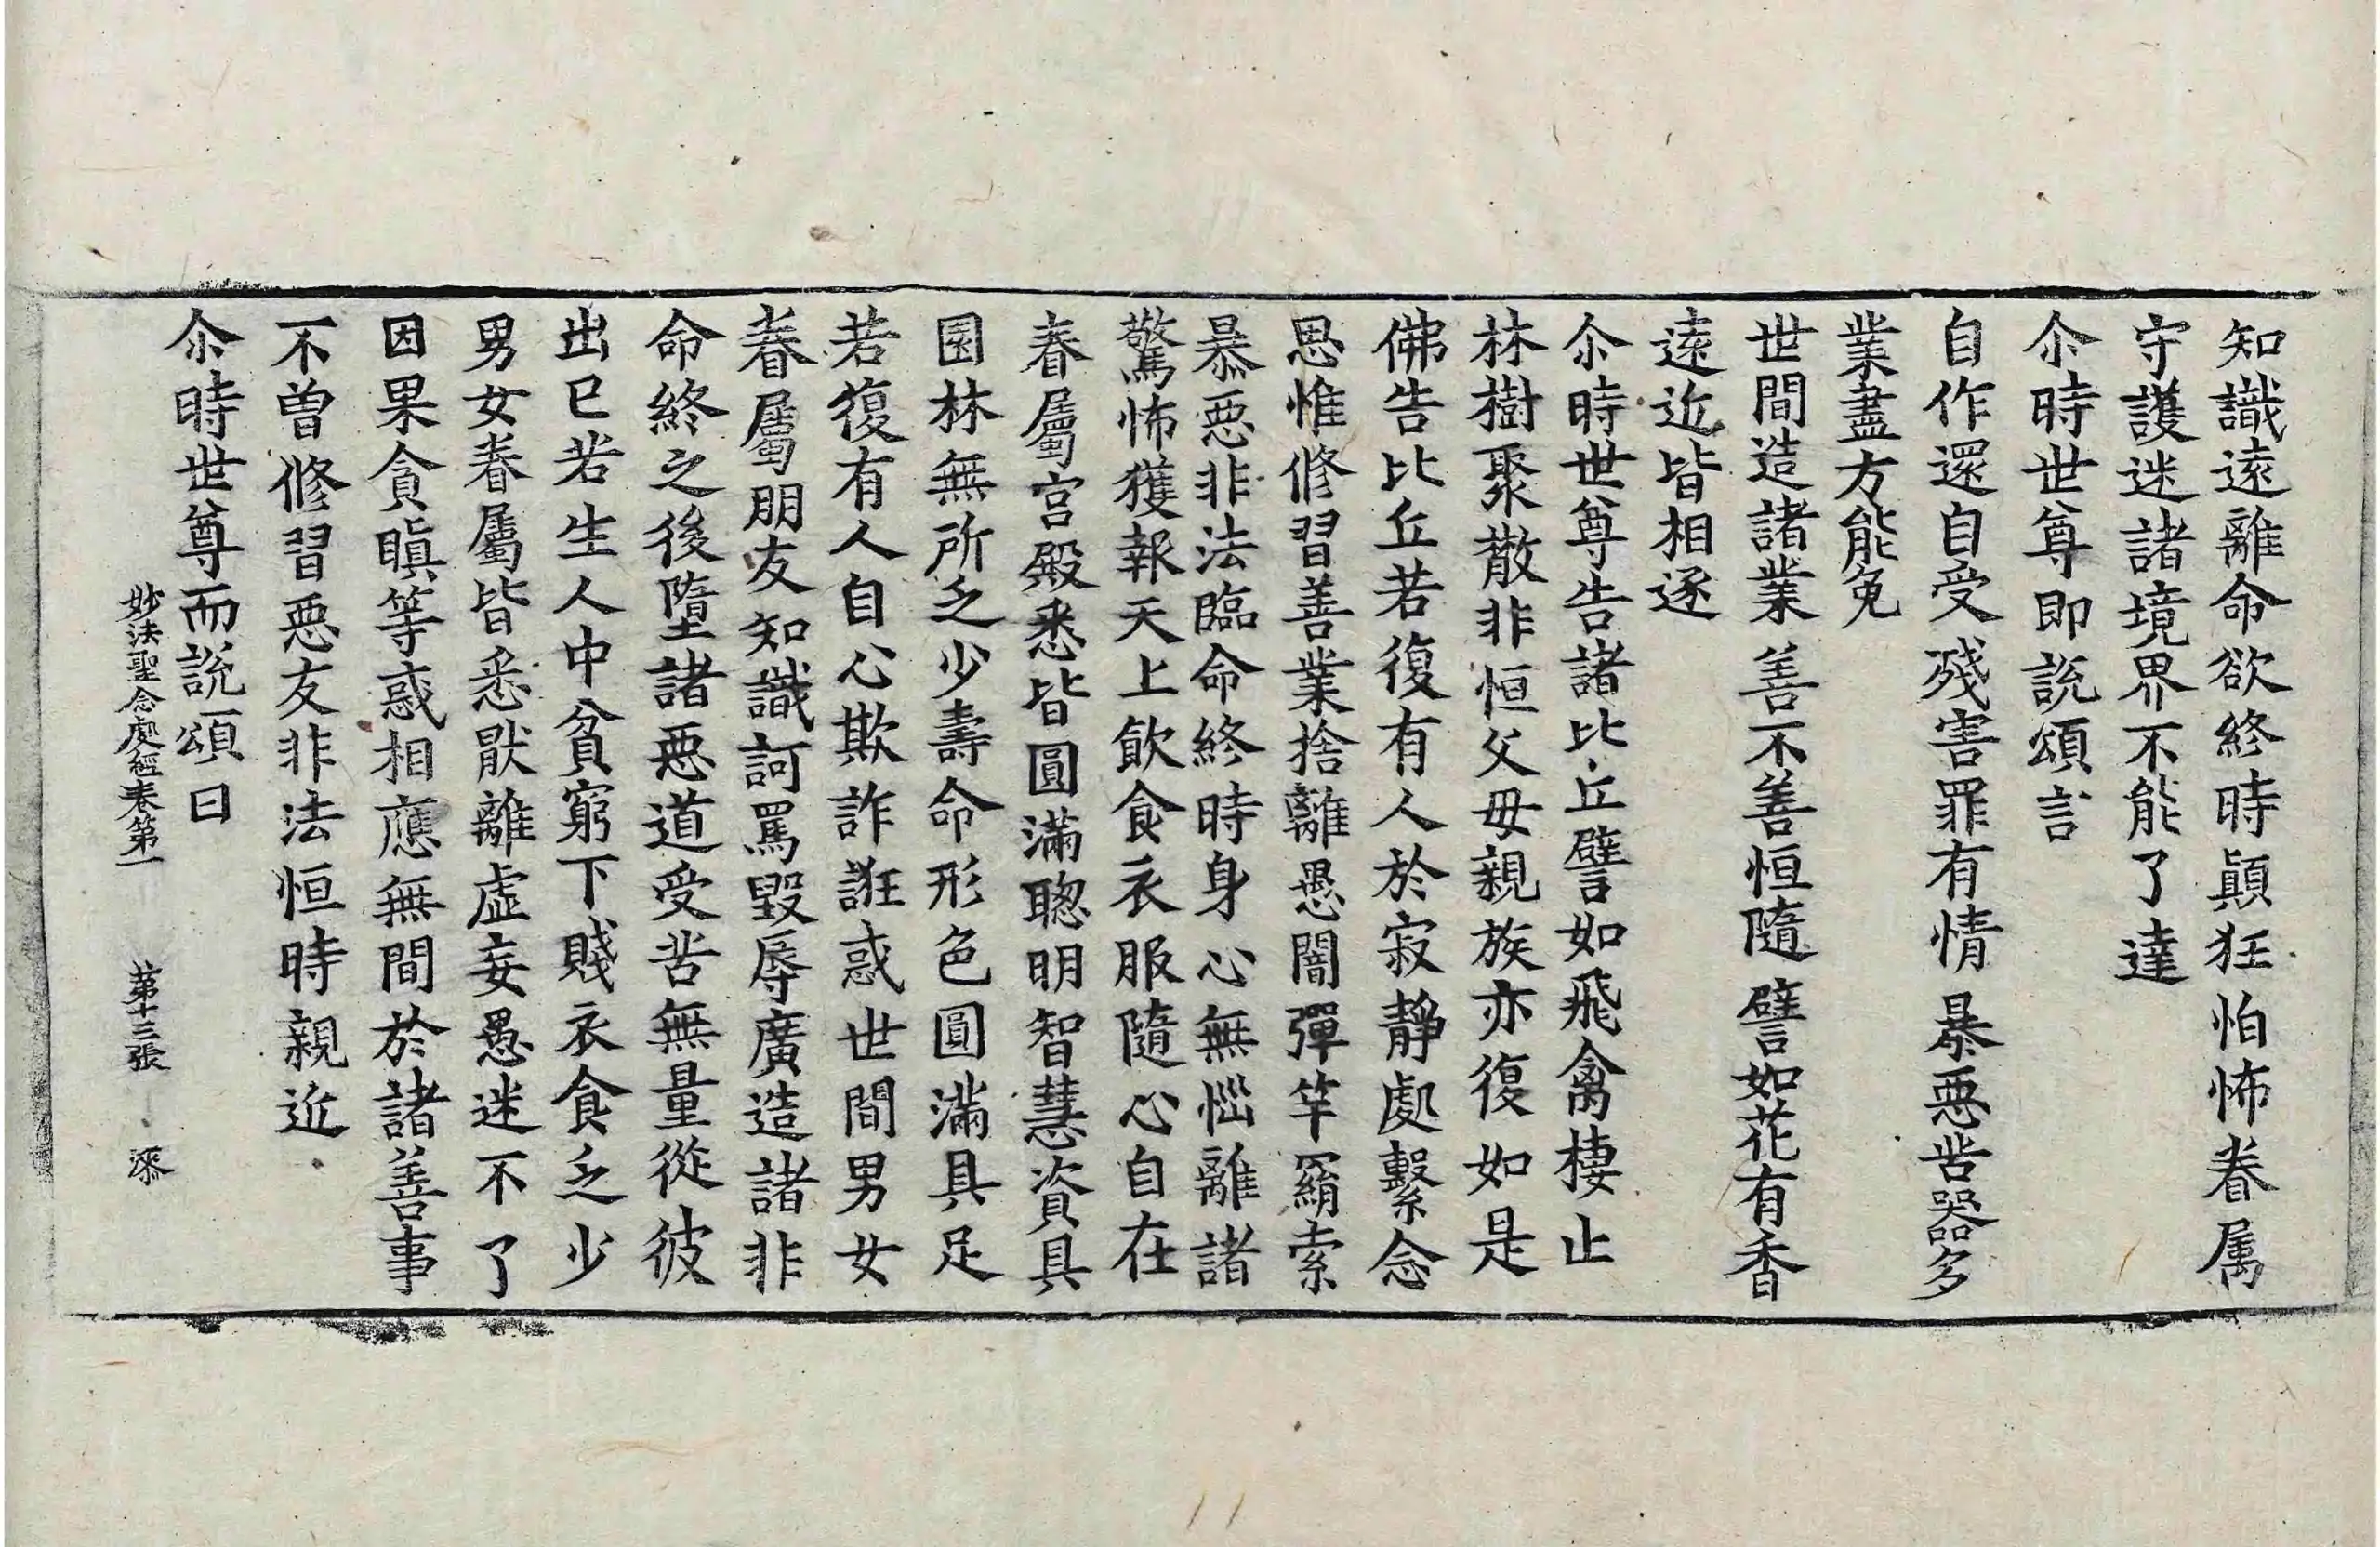 知識遠離命欲終時顛狂怕怖眷属
守護迷諸境界不能了達
尒時世尊即說頌言
自作還自受 殘害罪有情 暴惡苦器多
業盡方能免
世間造諸業 善不善恒隨 譬如花有香
遠近皆相逐
尒時世尊告諸比丘譬如飛禽棲止
林樹聚散非恒父母親族亦復如是
佛告比丘若復有人於寂靜處繫念
思惟修習善業捨離愚闇彈竿羂索
暴惡非法臨命終時身心無惱離諸
驚怖獲報天上飲食衣服隨心自在
眷屬宮殿悉皆圓滿聰明智慧資具
園林無所乏少壽命形色圓滿具足
若復有人自心欺詐誑惑世間男女
眷屬朋友知識訶罵毀辱廣造諸非
命終之後墮諸惡道受苦無量從彼
出已若生人中貧窮下賤衣食乏少
男女眷屬皆悉猒離虛妄愚迷不了
因果貪瞋等惑相應無間於諸善事
不曾修習惡友非法恒時親近
尒時世尊而說頌曰
妙法聖念處經卷第一 第十三張 漆